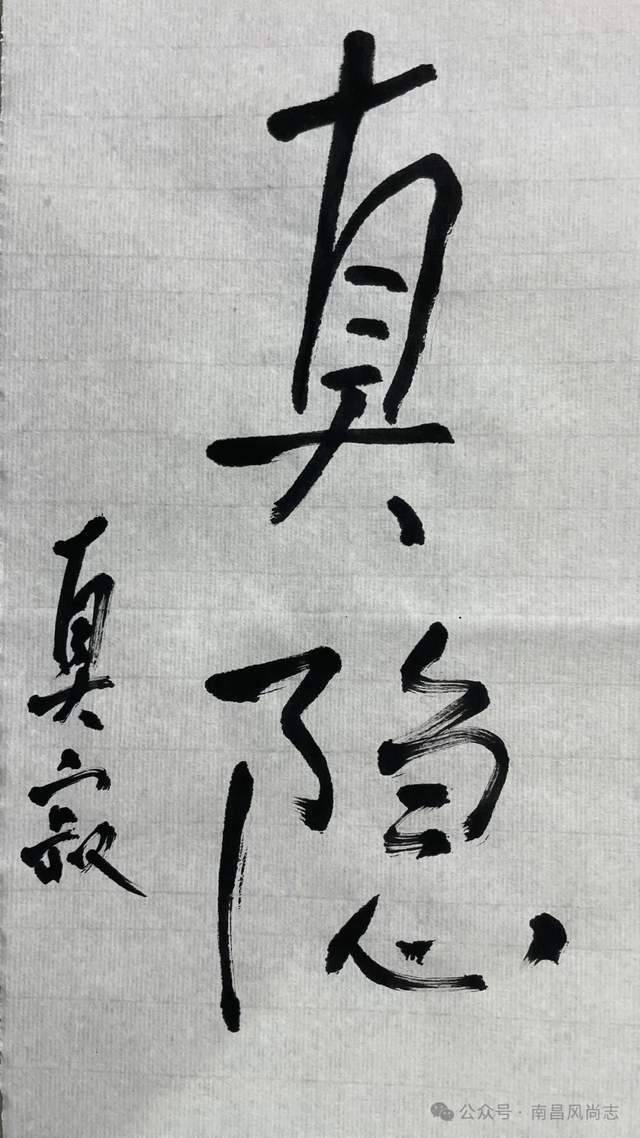 真隐
真寂
公众号·南昌风尚志